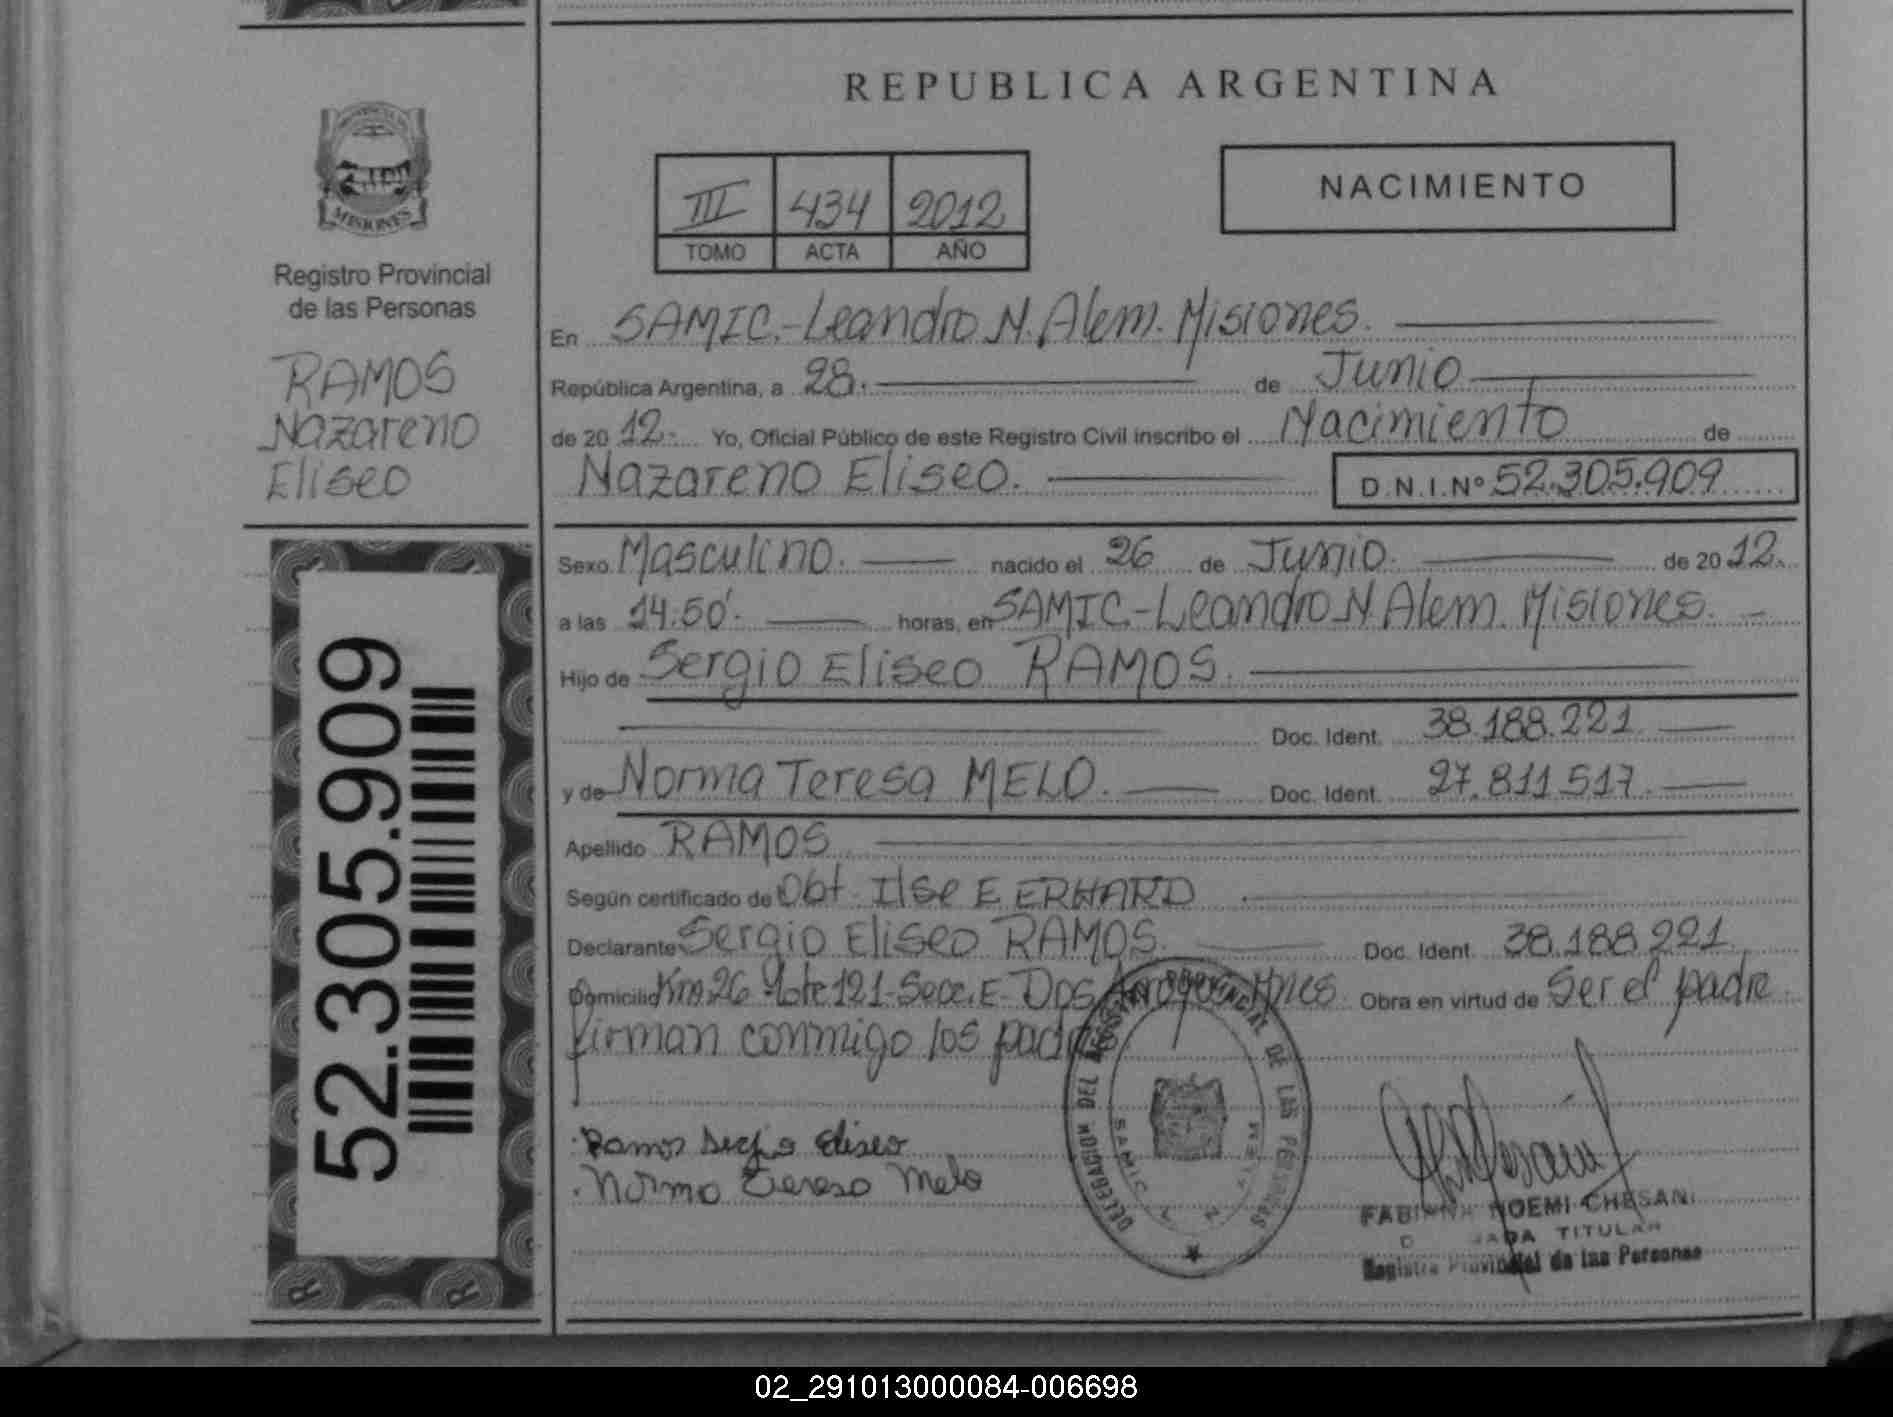 REPUBLICA ARGENTINA
MISIONES
Registro Provincial
de las Personas
RAMOS
Nazareno
Eliseo
52.305.909
III 434 2012
TOMO ACTA AÑO
NACIMIENTO
En SAMIC.-Leandro N. Alem. Misiones.
República Argentina, a 28. de Junio
de 20 12. Yo, Oficial Público de este Registro Civil inscribo el Nacimiento de
Nazareno Eliseo. D.N.I.Nº 52.305.909
Sexo Masculino. nacido el 26 de Junio. de 20 12.
a las 14:50'. horas, en SAMIC-Leandro N. Alem. Misiones.
Hijo de Sergio Eliseo RAMOS.
Doc. Ident. 38.188.221
y de Norma Teresa MELO. Doc. Ident. 27.811.517
Apellido RAMOS
Según certificado de Obt. Ilse E. ERHARD
Declarante Sergio Eliseo RAMOS. Doc. Ident. 38.188.221
Domicilio Km 26 Lote 121-Secc. E- Dos Arroyos Mnes. Obra en virtud de Ser el padre
firman conmigo los padres
Ramos Sergio Eliseo
Norma Teresa Melo
DELEGACION DEL REGISTRO PROVINCIAL DE LAS PERSONAS
SAMIC L N ALEM
FABIANA NOEMI CHESANI
TITULAR
Registro Provincial de las Personas
02_291013000084-006698